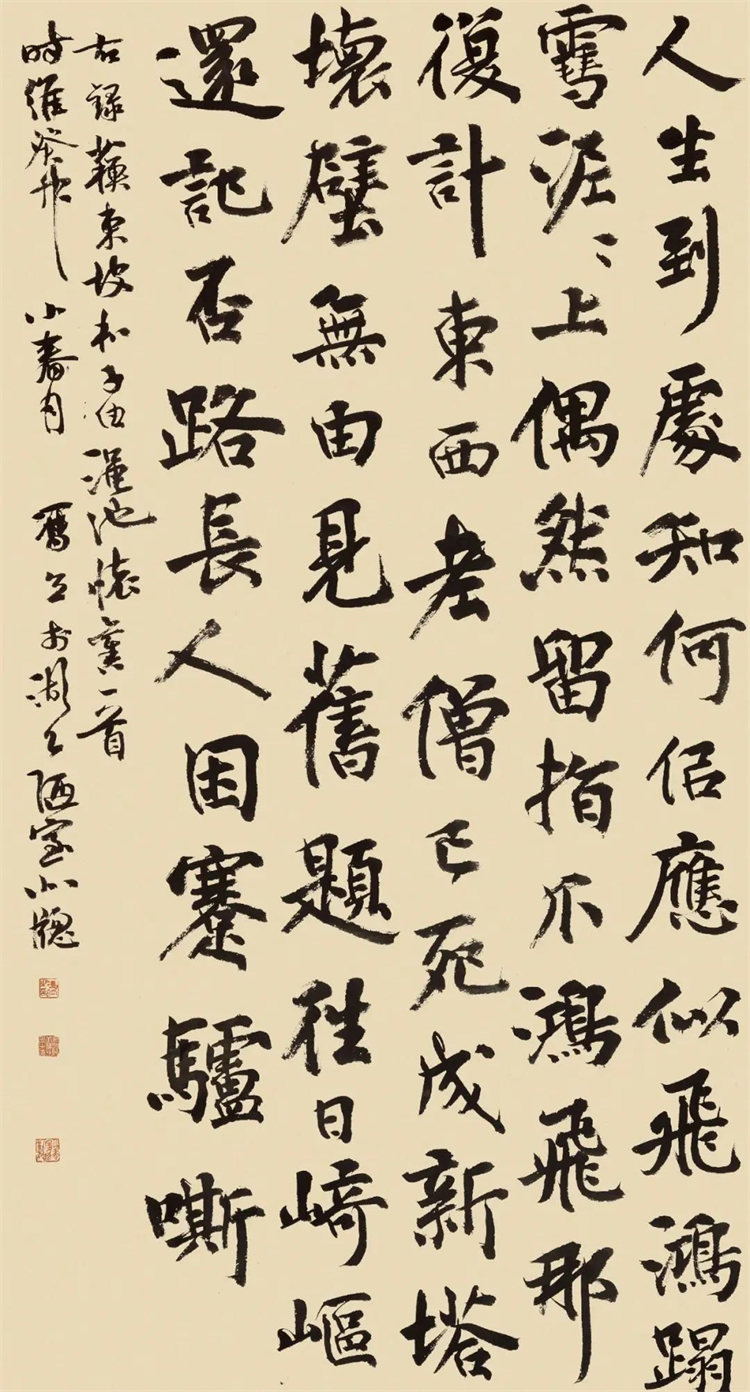 人生到處知何佀應似飛鴻蹋
雪泥〻上偶然留指爪鴻飛那
復計東西老僧已死成新塔
壞壁無由見舊題往日崎嶇
還記否路長人困蹇驢嘶
右錄蘇東坡和子由澠池懷舊一首
時維癸卯小春月 於湖上陋室小牕